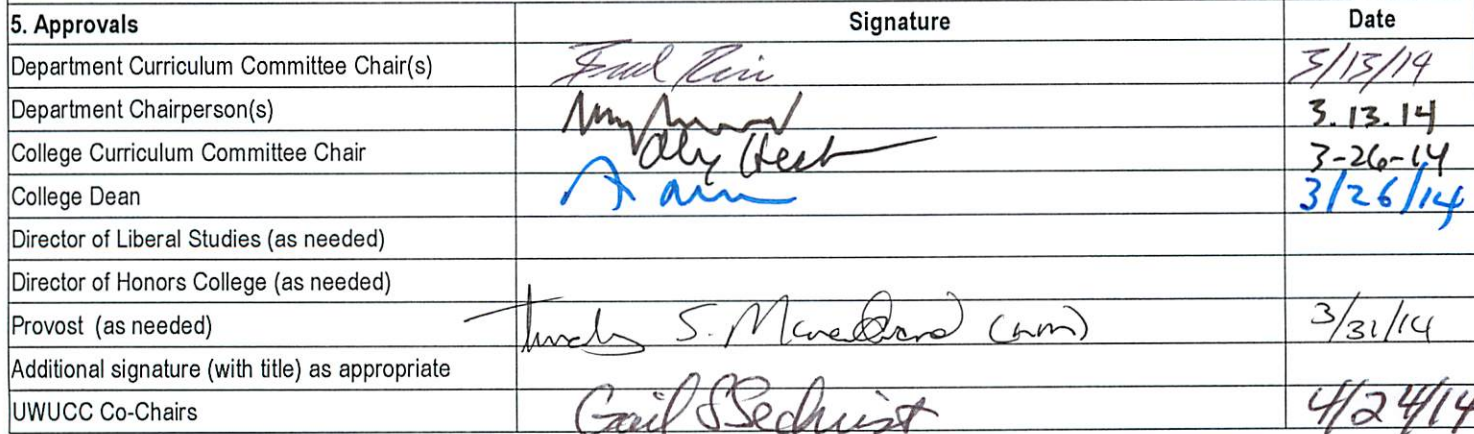 5. Approvals Signature Date
Department Curriculum Committee Chair(s) 3/13/14
Department Chairperson(s) 3.13.14
College Curriculum Committee Chair 3-26-14
College Dean 3/26/14
Director of Liberal Studies (as needed)
Director of Honors College (as needed)
Provost (as needed) S. 3/31/14
Additional signature (with title) as appropriate
UWUCC Co-Chairs Gail S Sechrist 4/24/14